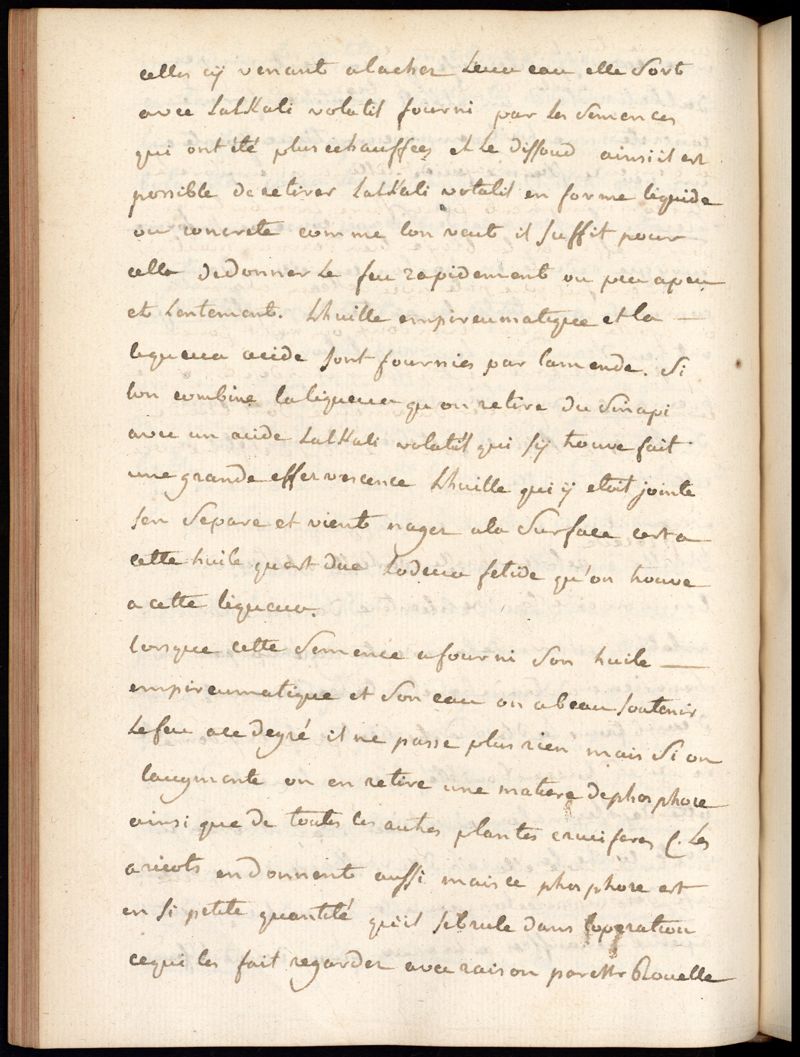 celles cÿ venant alacher leur eau elle Sort
avec LalKali volatil fourni par les Semences
qui ont été plus echauffées et le dissoud ainsi il est
possible de retirer LalKali volatil en forme liquide
ou concrete comme lon veut il suffit pour
cella de donner le feu rapidement ou peu apeu
et Lentement. Lhuille empireumatique et la —
liqueur acide sont fournies par lamende. Si
lon combine la liqueur qu'on retire du Sinapi
avec un acide LalKali volatil qui sÿ trouve fait
une grande effervescence Lhuille qui ÿ etoit jointe
sen Separe et vient nager ala Surface cest a
cette huile quest due Lodeur fetide qu'on trouve
a cette liqueur.
Lorsque cette Semence a fourni Son huile —
empireumatique et Son eau on a beau soutenir
Le feu ace degré il ne passe plus rien mais Si on
laugmente on en retire une matiere de phosphore
ainsi que de toutes les autres plantes cruciferes (. Les
aricots en donnent aussi mais ce phosphore est
en si petite quantité quil se brule dans loperation
ce qui les fait regarder avec raison par Mr Rouelle